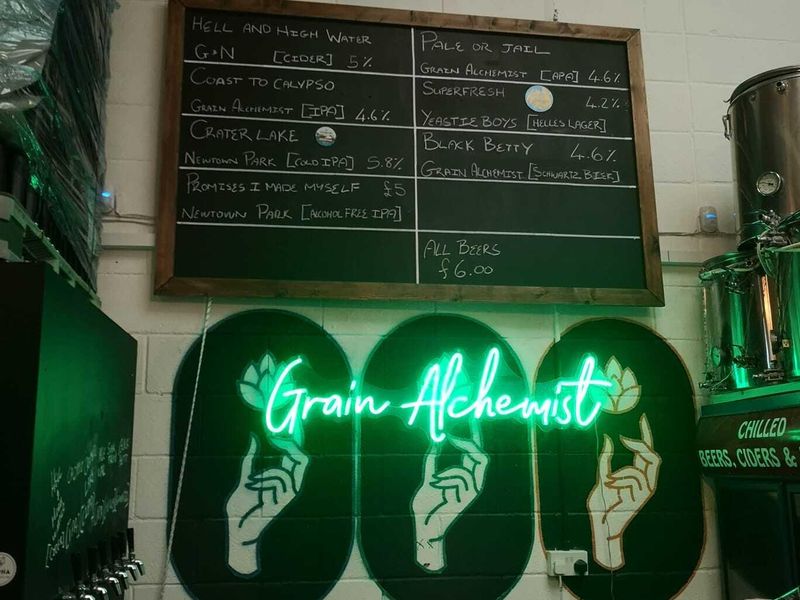 HELL AND HIGH WATER
G+N [CIDER] 5%
COAST TO CALYPSO
GRAIN ALCHEMIST [IPA] 4.6%
CRATER LAKE
NEWTOWN PARK [COLD IPA] 5.8%
PROMISES I MADE MYSELF £5
NEWTOWN PARK [ALCOHOL FREE IPA]
PALE OR JAIL
GRAIN ALCHEMIST [APA] 4.6%
SUPERFRESH 4.2%
YEASTIE BOYS [HELLES LAGER]
BLACK BETTY 4.6%
GRAIN ALCHEMIST [SCHWARTZ BIER]
ALL BEERS
£6.00
Grain Alchemist
CHILLED
BEERS, CIDERS &